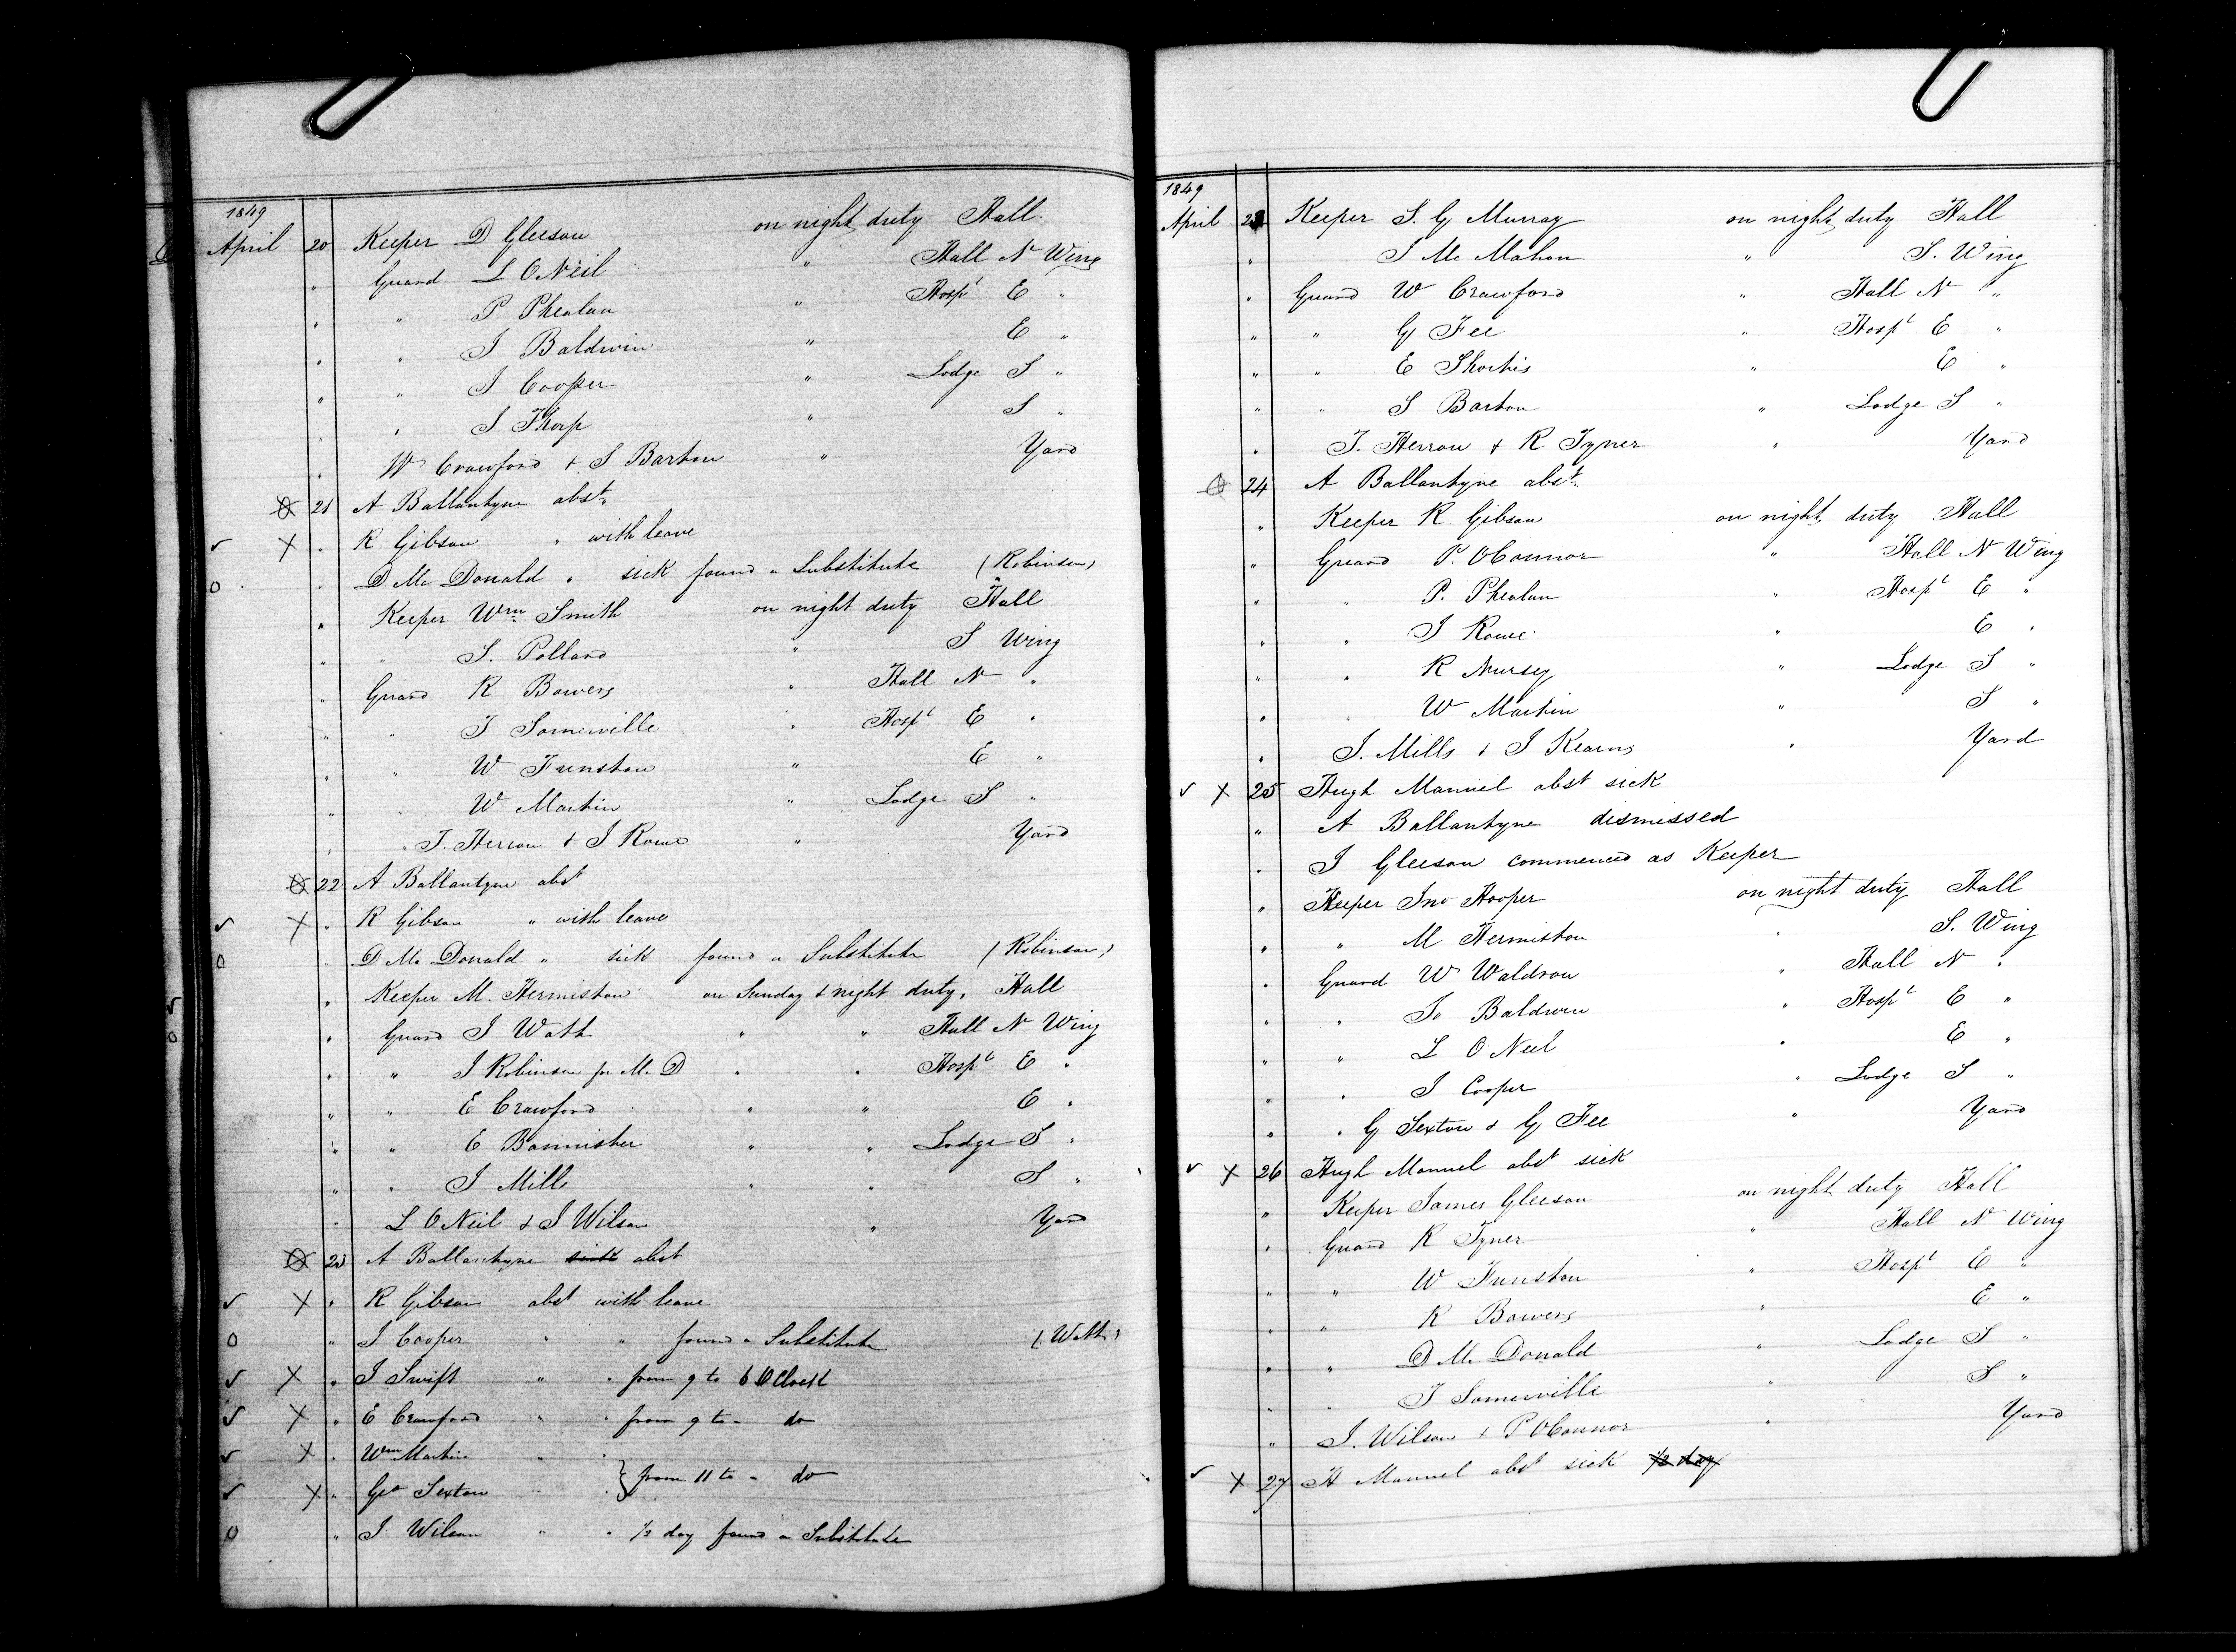 1849
April 20 Keeper D Gleeson on night duty Hall
" Guard L ONeil " Hall N Wing
" " P Phealan " Hospl E "
" " J Baldwin " E "
" " J Cooper " Lodge S "
" " J Thorp " S "
" W Crawford & S Barton " Yard
21 A Ballantyne abst
✓ X " R Gibson " with leave
O " D Mc Donald " sick found a Substitute (Robinson)
" Keeper Wm Smith on night duty Hall
" " S. Pollard " S Wing
" Guard R Bowers " Hall N "
" " T Somerville " Hospl E "
" " W Funston " E "
" " W Martin " Lodge S "
" " T. Herron & J Rowe " Yard
22 A Ballantyne abst
✓ X " R Gibson " with leave
O " D Mc Donald " sick found a Substitute (Robinson)
" Keeper M. Hermiston on Sunday & night duty, Hall
" Guard J Watt " " Hall N Wing
" " J Robinson for Mc D " " Hospl E "
" " E Crawford " " E "
" " E Bannister " " Lodge S "
" " J Mills " " S "
" L ONeil & J Wilson " Yard
23 A Ballantyne sick abst
✓ X " R Gibson abst with leave
O " J Cooper " " found a Substitute (Watt)
✓ X " J Swift " " from 9 to 6 OClock
✓ X " E Crawford " " from 9 to " do
✓ X " Wm Martin " "
✓ X " Geo Sexton " " } from 11 to " do
O " J Wilson " " 1/2 day found a Substitute
1849
April 23 Keeper S. G Murray on night duty Hall
" J Mc Mahon " S. Wing
" Guard W Crawford " Hall N "
" " G Fee " Hospl E "
" " E Shortis " E "
" " S Barton " Lodge S "
" T. Herron & R Tyner " Yard
24 A Ballantyne abst
" Keeper R Gibson on night duty Hall
" Guard P. OConnor " Hall N Wing
" " P. Phealan " Hospl E "
" " J Rowe " E "
" " R Nursey " Lodge S "
" " W Martin " S "
" J. Mills & J Kearns " Yard
✓ X 25 Hugh Manuel abst sick
" A Ballantyne dismissed
" J Gleeson commenced as Keeper
" Keeper Jno Hooper on night duty Hall
" " M Hermiston " S. Wing
" Guard W Waldron " Hall N "
" " Jo Baldwin " Hospl E "
" " L ONeil " E "
" " J Cooper " Lodge S "
" " G Sexton & G Fee " Yard
✓ X 26 Hugh Manuel abst sick
" Keeper James Gleeson on night duty Hall
" Guard R Tyner " Hall N Wing
" " W Funston " Hospl E "
" " R Bowers " E "
" " D Mc Donald " Lodge S "
" " T Somerville " S "
" J. Wilson & P OConnor " Yard
✓ X 27 H Manuel abst sick 1/2 day